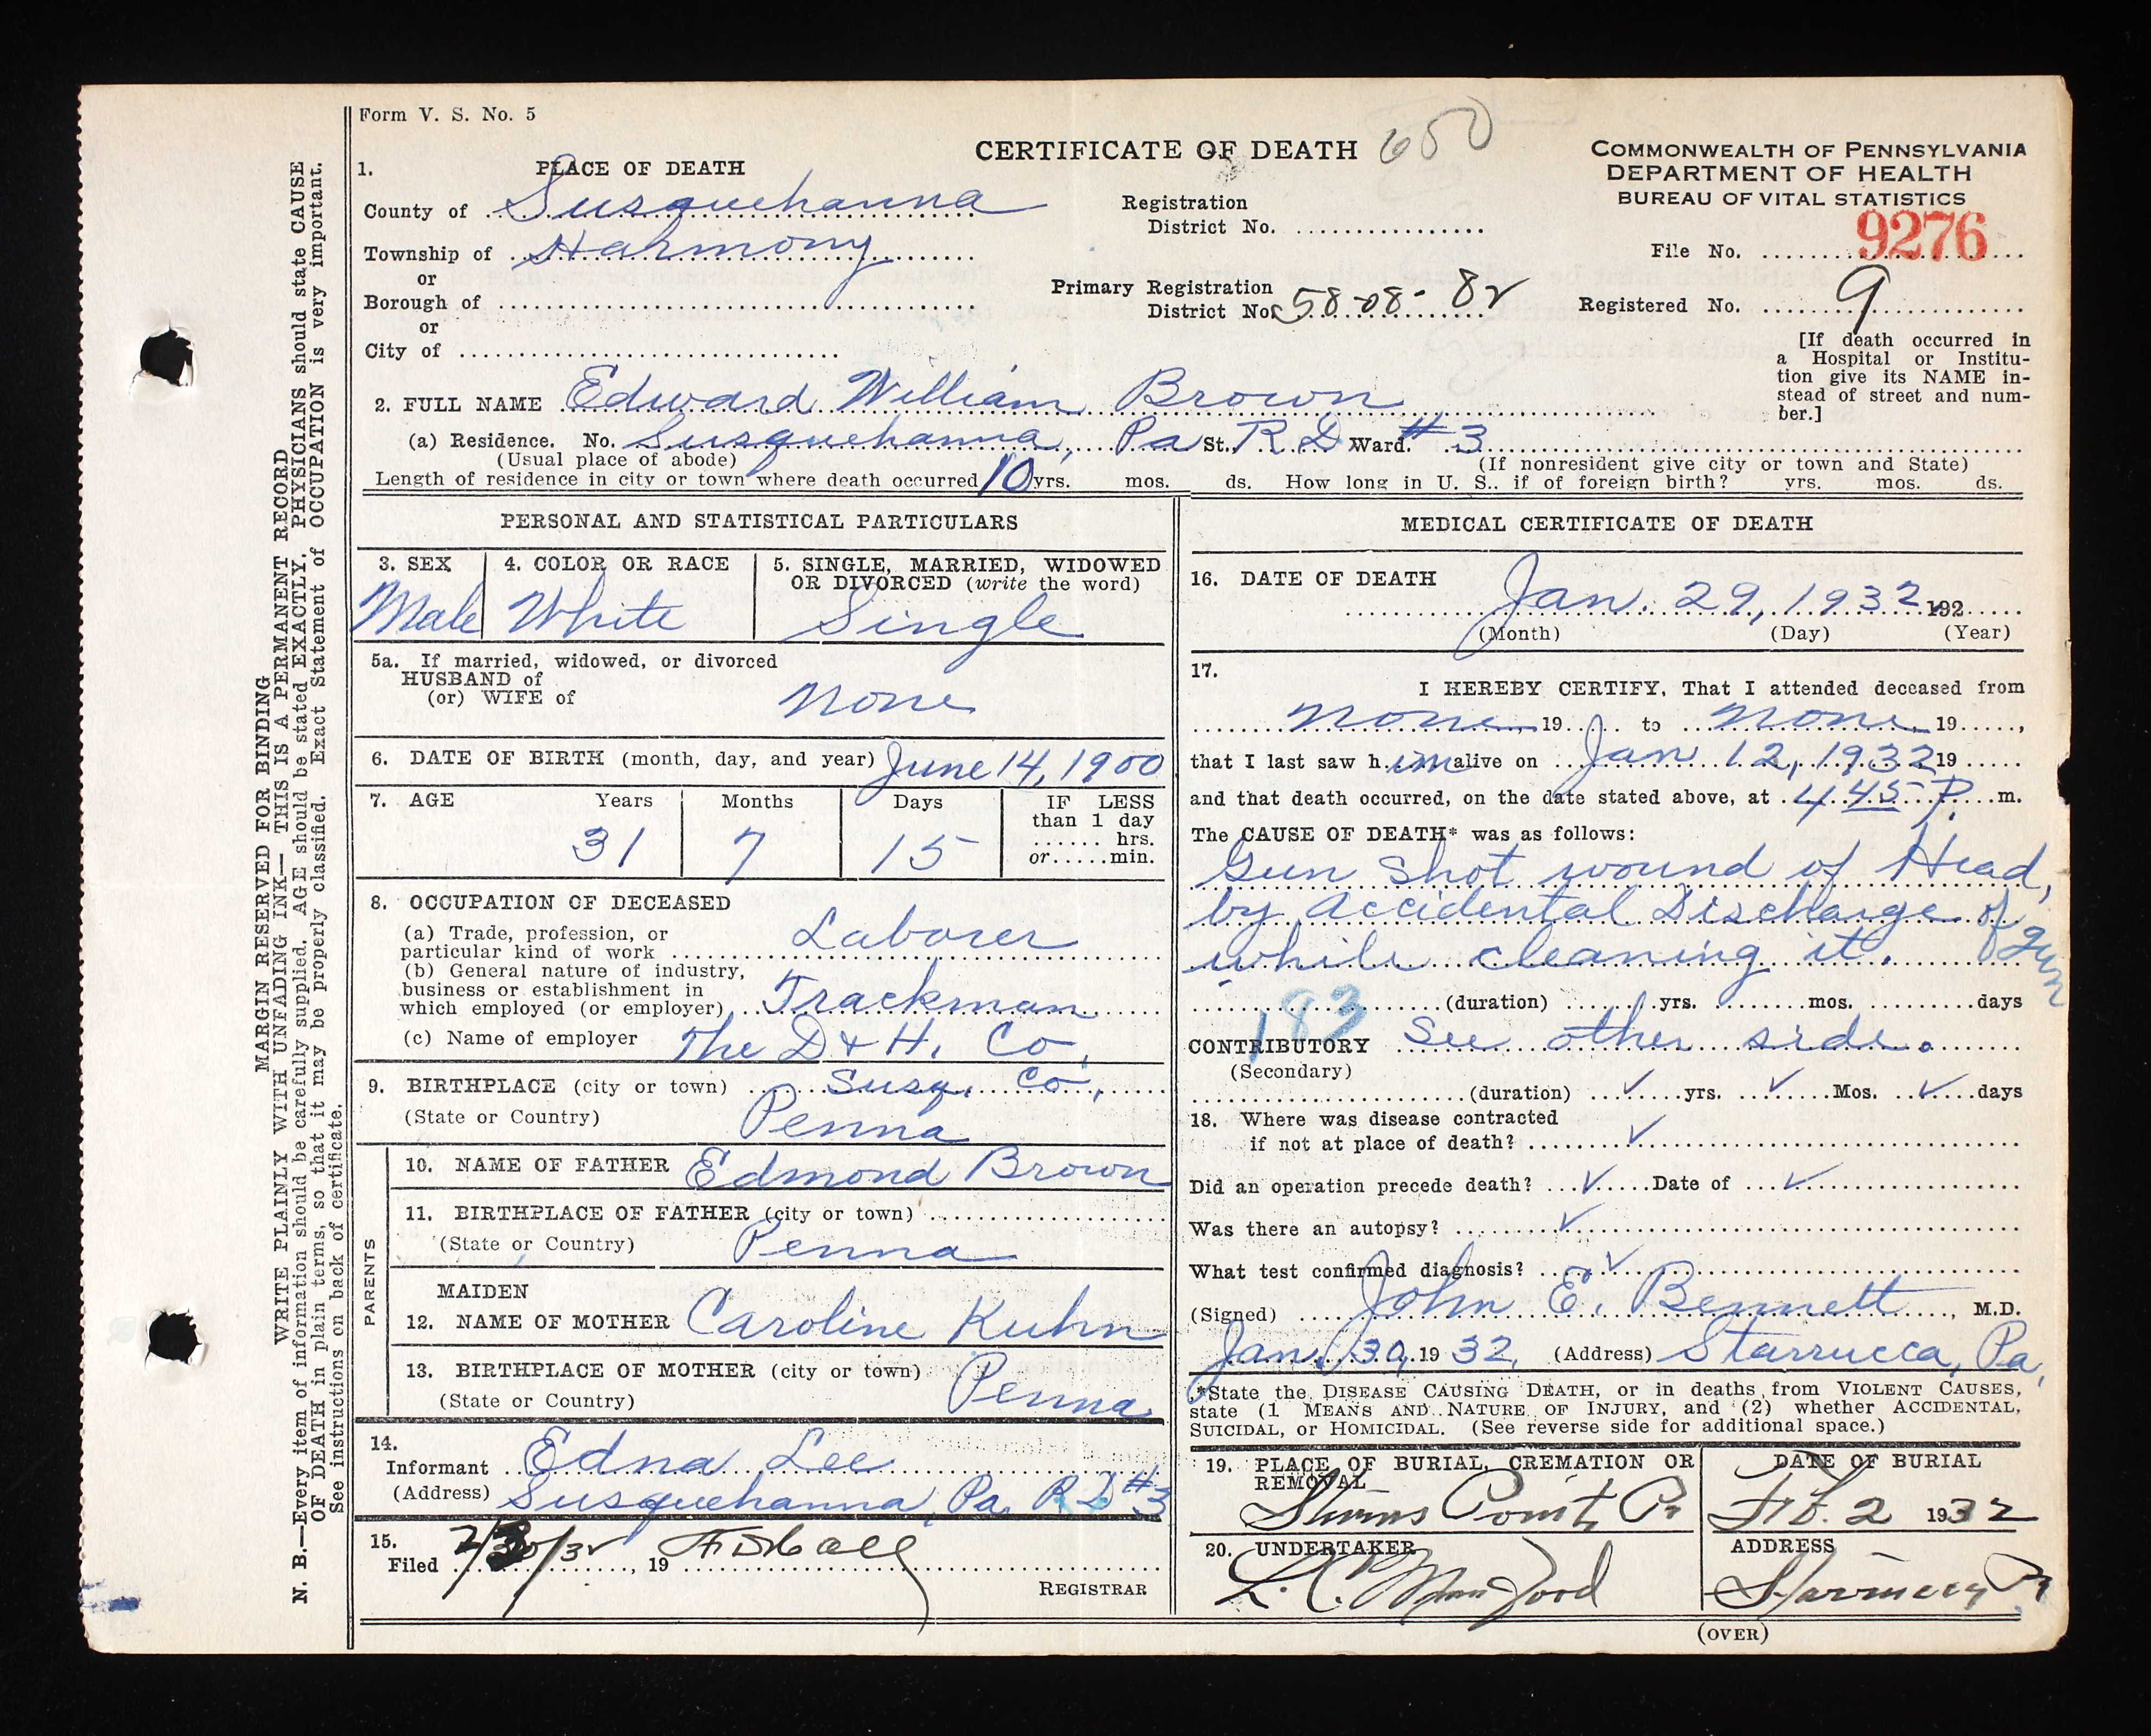 Form V. S. No. 5
CERTIFICATE OF DEATH 650
COMMONWEALTH OF PENNSYLVANIA
DEPARTMENT OF HEALTH
BUREAU OF VITAL STATISTICS
File No. 9276
Registered No. 9
[If death occurred in
a Hospital or Institu-
tion give its NAME in-
stead of street and num-
ber.]
1. PLACE OF DEATH
County of Susquehanna
Township of Harmony
or
Borough of
or
City of
Registration
District No.
Primary Registration
District No. 58-08-82
2. FULL NAME Edward William Brown
(a) Residence. No. Susquehanna, Pa St. R D Ward. #3
(Usual place of abode) (If nonresident give city or town and State)
Length of residence in city or town where death occurred 10 yrs. mos. ds. How long in U. S., if of foreign birth? yrs. mos. ds.
PERSONAL AND STATISTICAL PARTICULARS
3. SEX
Male
4. COLOR OR RACE
White
5. SINGLE, MARRIED, WIDOWED
OR DIVORCED (write the word)
Single
5a. If married, widowed, or divorced
HUSBAND of
(or) WIFE of None
6. DATE OF BIRTH (month, day, and year) June 14, 1900
7. AGE Years Months Days IF LESS
than 1 day
hrs.
or min.
31 7 15
8. OCCUPATION OF DECEASED
(a) Trade, profession, or
particular kind of work Laborer
(b) General nature of industry,
business or establishment in
which employed (or employer) Trackman
(c) Name of employer The D & H. Co.
9. BIRTHPLACE (city or town) Susq. Co.,
(State or Country) Penna
PARENTS
10. NAME OF FATHER Edmond Brown
11. BIRTHPLACE OF FATHER (city or town)
(State or Country) Penna
MAIDEN
12. NAME OF MOTHER Caroline Kuhn
13. BIRTHPLACE OF MOTHER (city or town)
(State or Country) Penna
14.
Informant Edna Lee
(Address) Susquehanna, Pa. R D #3
15.
Filed , 19
REGISTRAR
MEDICAL CERTIFICATE OF DEATH
16. DATE OF DEATH
Jan. 29, 1932 192
(Month) (Day) (Year)
17.
I HEREBY CERTIFY, That I attended deceased from
None, 19 to None 19 ,
that I last saw h im alive on Jan 12, 1932 19
and that death occurred, on the date stated above, at 4 45 P. m.
The CAUSE OF DEATH* was as follows:
Gun Shot wound of Head,
by Accidental Discharge of gun
while cleaning it.
183 (duration) yrs. mos. days
CONTRIBUTORY See other side.
(Secondary)
(duration) yrs. Mos. days
18. Where was disease contracted
if not at place of death?
Did an operation precede death? Date of
Was there an autopsy?
What test confirmed diagnosis?
(Signed) John E. Bennett, M.D.
Jan. 30, 19 32, (Address) Starrucca, Pa,
*State the DISEASE CAUSING DEATH, or in deaths from VIOLENT CAUSES,
state (1 MEANS AND NATURE OF INJURY, and (2) whether ACCIDENTAL,
SUICIDAL, or HOMICIDAL. (See reverse side for additional space.)
19. PLACE OF BURIAL, CREMATION OR
REMOVAL
Point, Pa
DATE OF BURIAL
Feb. 2 1932
20. UNDERTAKER
ADDRESS
Starrucca Pa
(OVER)
MARGIN RESERVED FOR BINDING
WRITE PLAINLY WITH UNFADING INK—THIS IS A PERMANENT RECORD
N. B.—Every item of information should be carefully supplied. AGE should be stated EXACTLY. PHYSICIANS should state CAUSE
OF DEATH in plain terms, so that it may be properly classified. Exact Statement of OCCUPATION is very important.
See instructions on back of certificate.